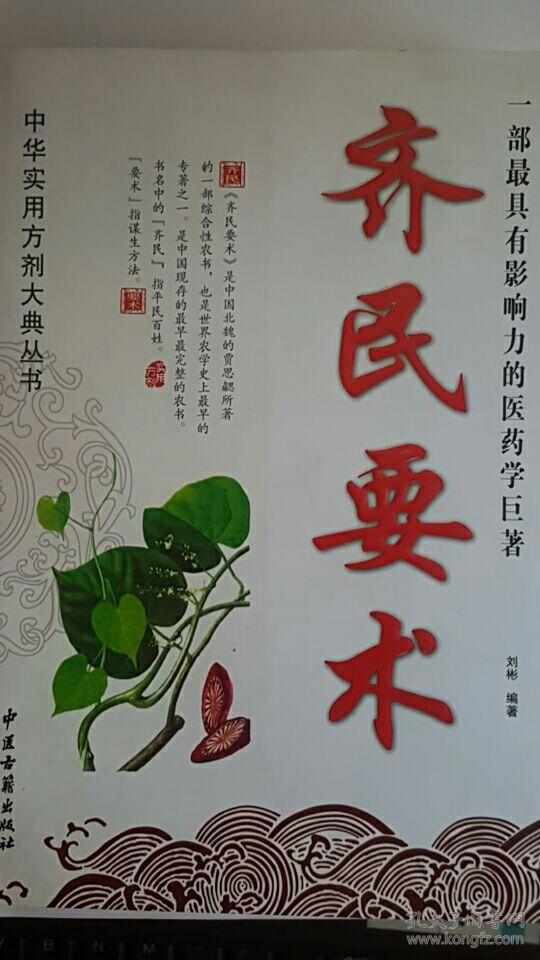 一部最具有影响力的医药学巨著
齐民要术
刘彬 编著
齐民
《齐民要术》是中国北魏的贾思勰所著
的一部综合性农书，也是世界农学史上最早的
专著之一。是中国现存的最早最完整的农书。
书名中的「齐民」，指平民百姓。
「要术」指谋生方法。
要术
中华实用方剂大典丛书
中医古籍出版社
V B N M
孔夫子旧书网
www.kongfz.com